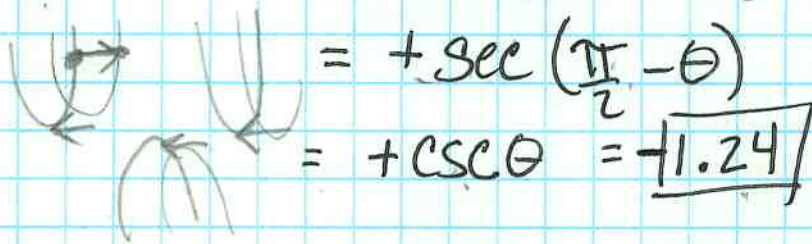 = + sec (π/2 - θ)
= + csc θ = +1.24